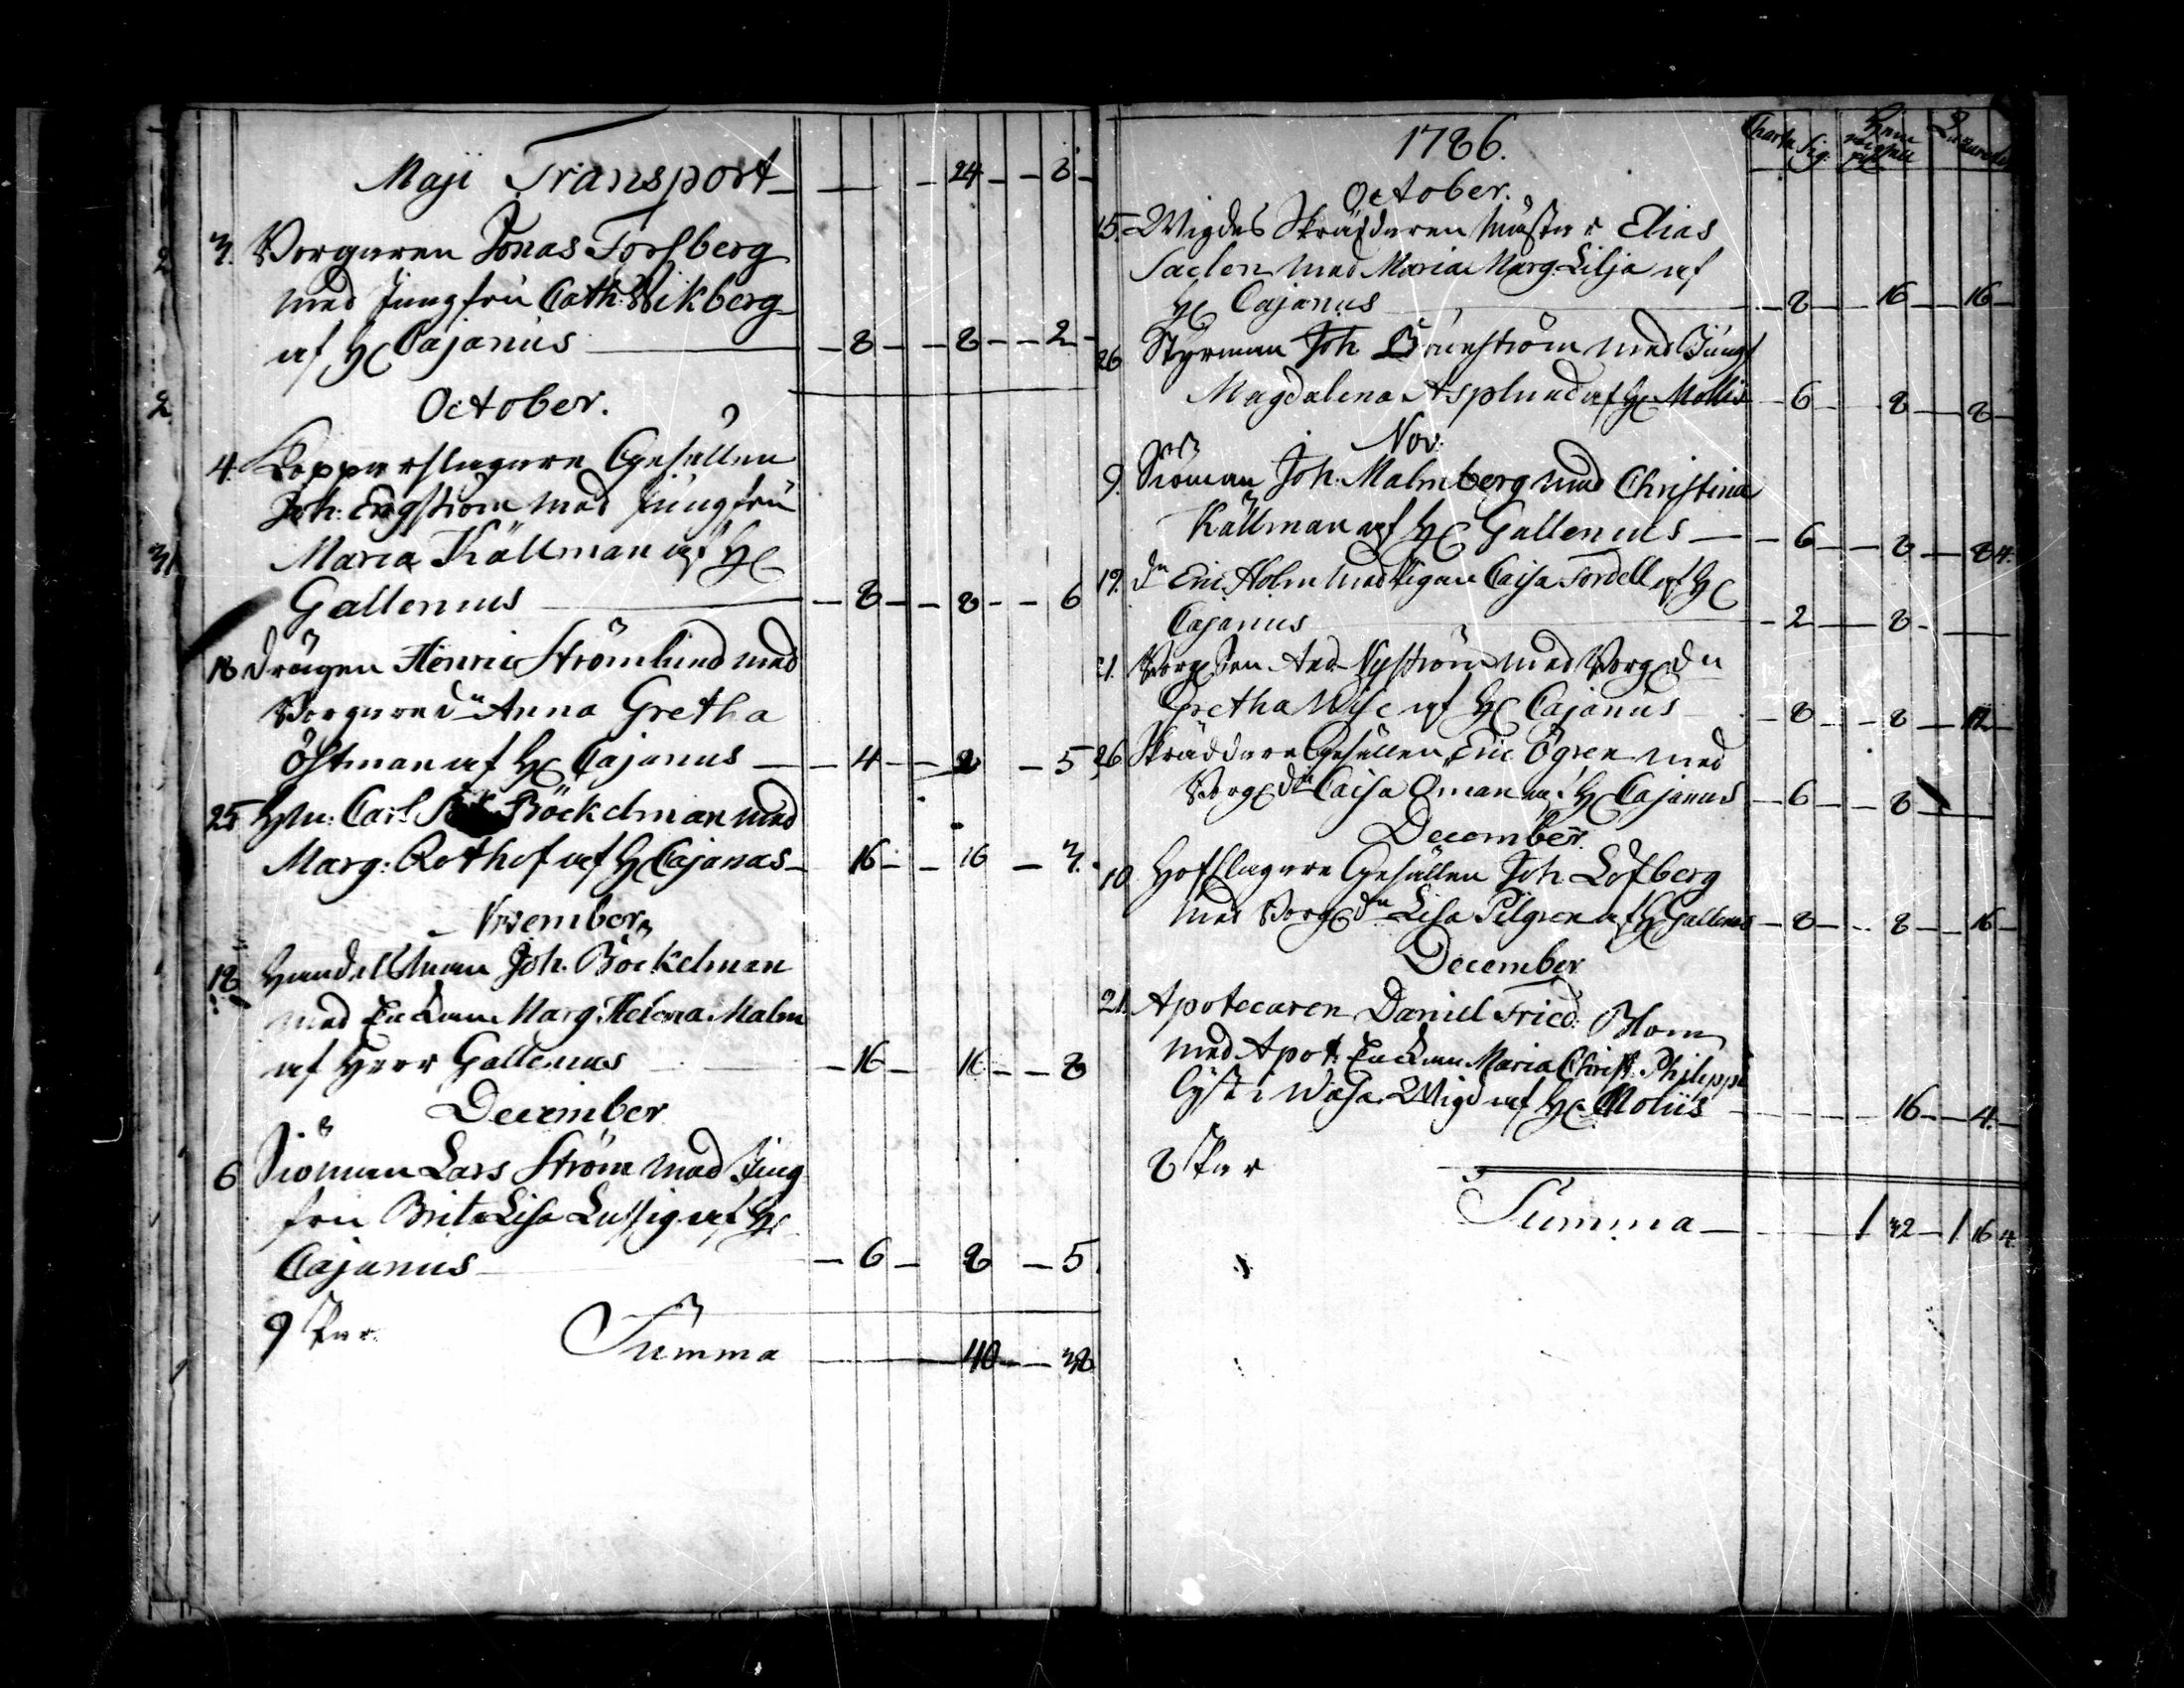 Maji Transport — 24 — 8
3. Borgaren Jonas Forsberg
med Jungfru Cath: Wikberg
af H Cajanus — 8 — 8 — 2
October.
4. Kopparslagare Gesällen
Joh: Engström med Jungfru
Maria Källman af H
Gallenius — 8 — 8 — 6
18 Drägen Henric Strömlund med
Borgare dn Anna Gretha
Östman af H Cajanus — 4 — 8 — 5
25 Hn: Carl Böckelman med
Marg: Rothof af H Cajanus — 16 — 16 — 3.
November
18 Handelsman Joh. Böckelman
med Enckan Marg. Helena Malm
af Herr Gallenius — 16 — 16 — 8
December
6 Siöman Lars Ström med Jung
fru Brita Lisa Lussig af H
Cajanus — 6 — 8 — 5.
9 Par. Summa — 40 — 38
1786.
Charta Sig.
October.
15. Wigdes Skräddaren Mäster Elias
Saclen med Maria Marg. Lilja af
H Cajanus — 8 — 16 — 16
26 Styrman Joh. Brunström med Jungf
Magdalena Asplund af H. Mollis — 6 — 8 — 8
Nov:
9. Siöman Joh. Malmberg med Christina
Källman af H Gallenius — 6 — 8 — 8 4.
19. dn Eric Holm med Pigan Caisa Fordell af H
Cajanus — 2 — 8 —
21. Borg Son And. Nyström med Borg dn
Gretha Wise af H Cajanus — 8 — 8 — 12
26 Skräddare Gesällen Eric Ögren med
Borg dn Caisa Öman af H Cajanus — 6 — 8 —
December.
10 Hofslagare Gesällen Joh Löfberg
med Borg dn Lisa Pilgren af H Gallenius — 8 — 8 — 16
December
21. Apotecaren Daniel Fried: Blom
med Apot: Enckan Maria Christ. Philippi
Wasa Wigd af H. Moliis — 16 — 4.
8 Par
Summa — 1 32 — 1 16 4